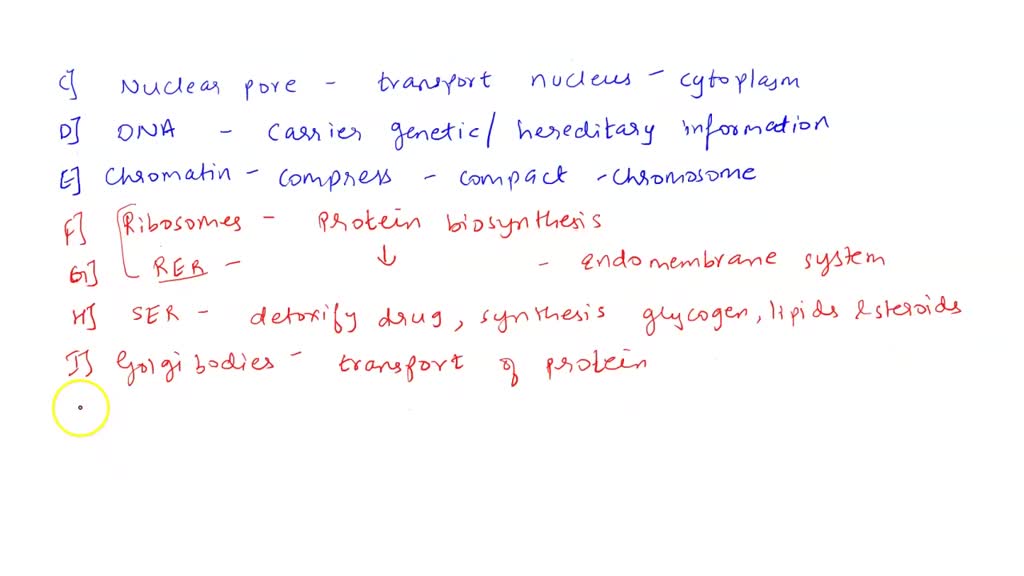 C] Nuclear pore - transport nucleus - cytoplasm
D] DNA - carrier genetic/hereditary information
E] Chromatin - compress - compact - chromosome
F] Ribosomes - protein biosynthesis
G] RER - ↓ - Endomembrane system
H] SER - detoxify drug, synthesis glycogen, lipids & steroids
I] Golgi bodies - transport of protein